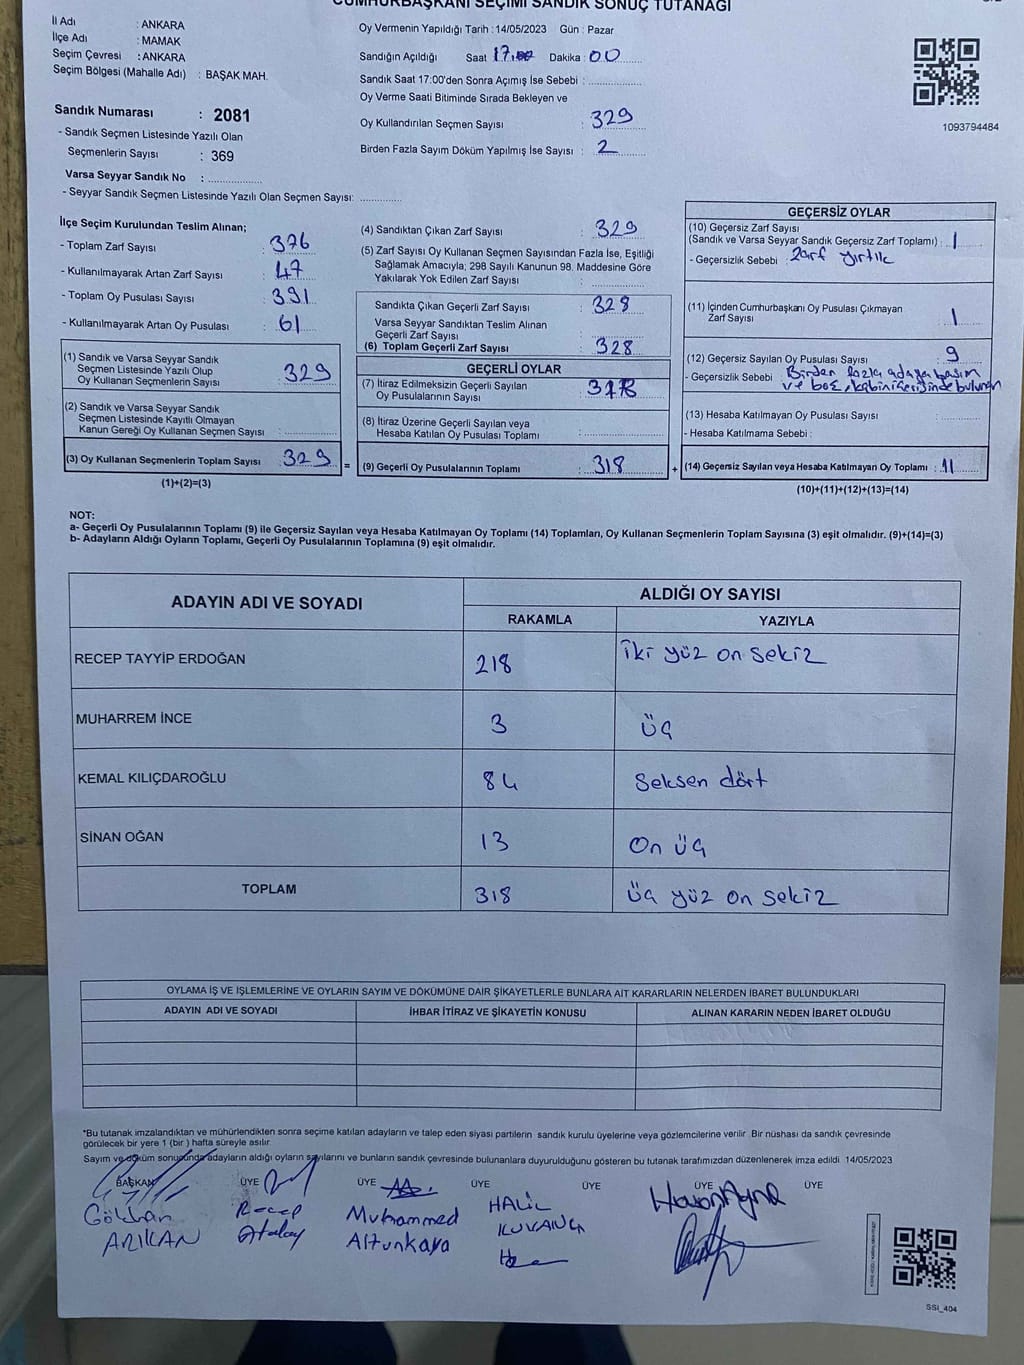 CUMHURBAŞKANI SEÇİMİ SANDIK SONUÇ TUTANAĞI
İl Adı : ANKARA
İlçe Adı : MAMAK
Seçim Çevresi : ANKARA
Seçim Bölgesi (Mahalle Adı) : BAŞAK MAH.
Sandık Numarası : 2081
- Sandık Seçmen Listesinde Yazılı Olan
Seçmenlerin Sayısı : 369
Varsa Seyyar Sandık No :
- Seyyar Sandık Seçmen Listesinde Yazılı Olan Seçmen Sayısı:
Oy Vermenin Yapıldığı Tarih : 14/05/2023 Gün : Pazar
Sandığın Açıldığı Saat 17.00 Dakika : 00
Sandık Saat 17:00'den Sonra Açımış İse Sebebi :
Oy Verme Saati Bitiminde Sırada Bekleyen ve
Oy Kullandırılan Seçmen Sayısı : 329
Birden Fazla Sayım Döküm Yapılmış İse Sayısı : 2
1093794484
İlçe Seçim Kurulundan Teslim Alınan;
- Toplam Zarf Sayısı : 376
- Kullanılmayarak Artan Zarf Sayısı : 47
- Toplam Oy Pusulası Sayısı : 391
- Kullanılmayarak Artan Oy Pusulası : 61
(1) Sandık ve Varsa Seyyar Sandık
Seçmen Listesinde Yazılı Olup
Oy Kullanan Seçmenlerin Sayısı : 329
(2) Sandık ve Varsa Seyyar Sandık
Seçmen Listesinde Kayıtlı Olmayan
Kanun Gereği Oy Kullanan Seçmen Sayısı :
(3) Oy Kullanan Seçmenlerin Toplam Sayısı : 329 =
(1)+(2)=(3)
(4) Sandıktan Çıkan Zarf Sayısı : 329
(5) Zarf Sayısı Oy Kullanan Seçmen Sayısından Fazla İse, Eşitliği
Sağlamak Amacıyla; 298 Sayılı Kanunun 98. Maddesine Göre
Yakılarak Yok Edilen Zarf Sayısı :
Sandıkta Çıkan Geçerli Zarf Sayısı : 328
Varsa Seyyar Sandıktan Teslim Alınan
Geçerli Zarf Sayısı :
(6) Toplam Geçerli Zarf Sayısı : 328
GEÇERLİ OYLAR
(7) İtiraz Edilmeksizin Geçerli Sayılan
Oy Pusulalarının Sayısı :
(8) İtiraz Üzerine Geçerli Sayılan veya
Hesaba Katılan Oy Pusulası Toplamı :
(9) Geçerli Oy Pusulalarının Toplamı : 318 +
GEÇERSİZ OYLAR
(10) Geçersiz Zarf Sayısı
(Sandık ve Varsa Seyyar Sandık Geçersiz Zarf Toplamı) : 1
- Geçersizlik Sebebi : Zarf yırtık
(11) İçinden Cumhurbaşkanı Oy Pusulası Çıkmayan
Zarf Sayısı : 1
(12) Geçersiz Sayılan Oy Pusulası Sayısı : 9
- Geçersizlik Sebebi : Birden fazla adaya basım
ve boş, kabin içerisinde bulunan
(13) Hesaba Katılmayan Oy Pusulası Sayısı :
- Hesaba Katılmama Sebebi :
(14) Geçersiz Sayılan veya Hesaba Katılmayan Oy Toplamı : 11
(10)+(11)+(12)+(13)=(14)
NOT:
a- Geçerli Oy Pusulalarının Toplamı (9) ile Geçersiz Sayılan veya Hesaba Katılmayan Oy Toplamı (14) Toplamları, Oy Kullanan Seçmenlerin Toplam Sayısına (3) eşit olmalıdır. (9)+(14)=(3)
b- Adayların Aldığı Oyların Toplamı, Geçerli Oy Pusulalarının Toplamına (9) eşit olmalıdır.
ADAYIN ADI VE SOYADI ALDIĞI OY SAYISI
RAKAMLA YAZIYLA
RECEP TAYYİP ERDOĞAN 218 iki yüz on sekiz
MUHARREM İNCE 3 üç
KEMAL KILIÇDAROĞLU 84 Seksen dört
SİNAN OĞAN 13 On üç
TOPLAM 318 üç yüz on sekiz
OYLAMA İŞ VE İŞLEMLERİNE VE OYLARIN SAYIM VE DÖKÜMÜNE DAİR ŞİKAYETLERLE BUNLARA AİT KARARLARIN NELERDEN İBARET BULUNDUKLARI
ADAYIN ADI VE SOYADI İHBAR İTİRAZ VE ŞİKAYETİN KONUSU ALINAN KARARIN NEDEN İBARET OLDUĞU
*Bu tutanak imzalandıktan ve mühürlendikten sonra seçime katılan adayların ve talep eden siyasi partilerin sandık kurulu üyelerine veya gözlemcilerine verilir. Bir nüshası da sandık çevresinde
görülecek bir yere 1 (bir) hafta süreyle asılır.
Sayım ve döküm sonucunda adayların aldığı oyların sayılarını ve bunların sandık çevresinde bulunanlara duyurulduğunu gösteren bu tutanak tarafımızdan düzenlenerek imza edildi 14/05/2023
BAŞKAN ÜYE ÜYE ÜYE ÜYE ÜYE ÜYE
Gökhan Recep Muhammed HALİL
ARIKAN Atalay Altunkaya
SSI_404